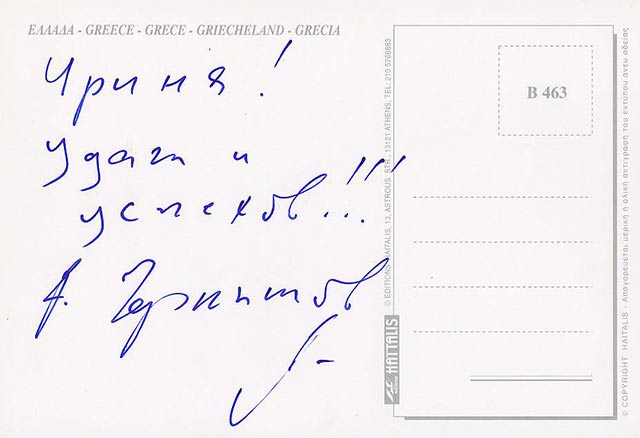 ΕΛΛΑΔΑ - GREECE - GRECE - GRIECHELAND - GRECIA
Ирина!
Удачи и
успехов!!!
А.
B 463
© EDITIONS HAITALIS, 13, ASTROUS STR. 13121 ATHENS, TEL: 210 5766883
HAITALIS
© COPYRIGHT HAITALIS - Απαγορεύεται μερική ή ολική αντιγραφή του εντύπου άνευ αδείας